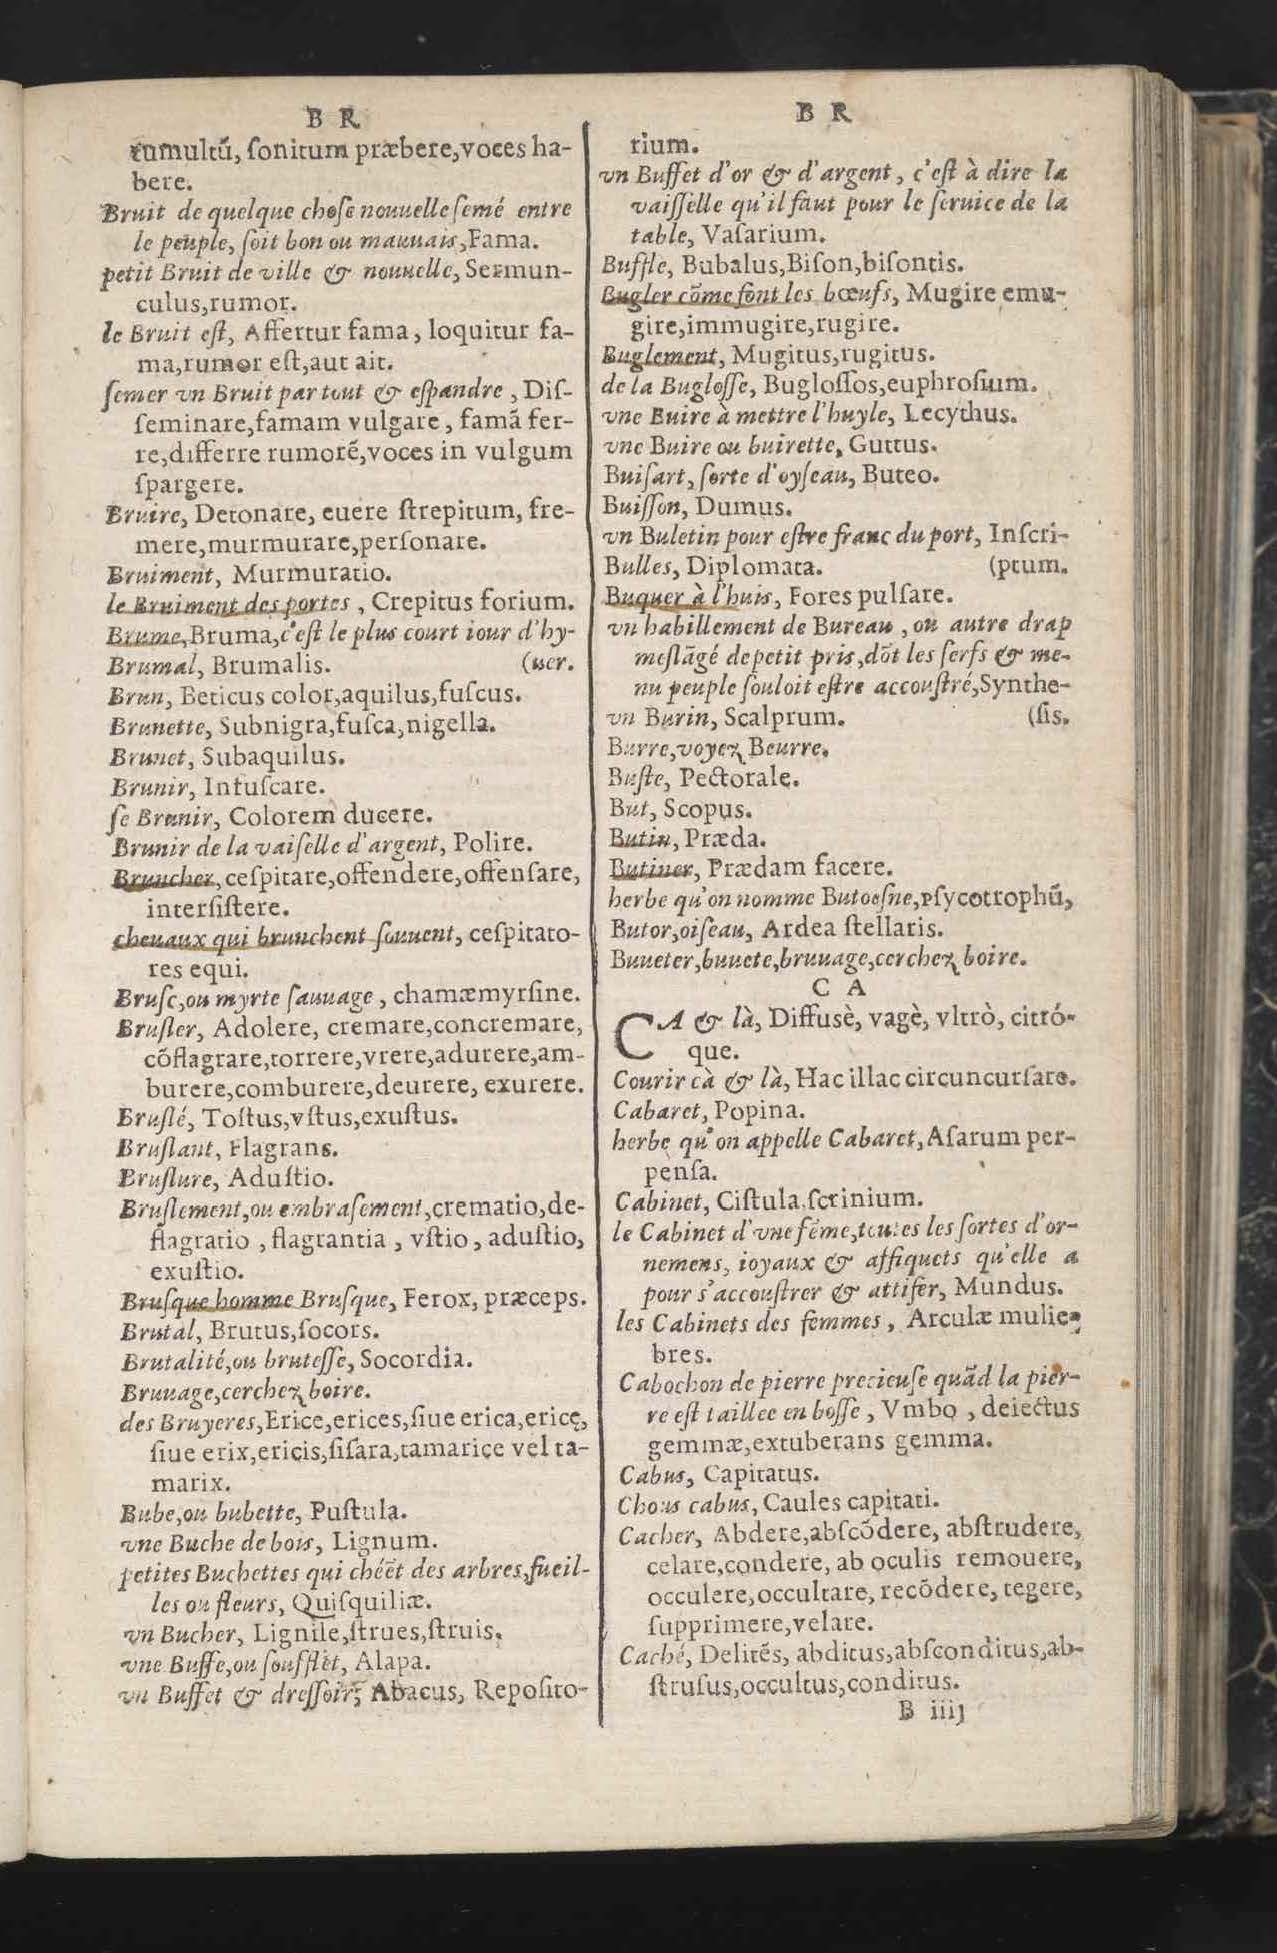 B R
tumultũ, ſonitum præbere, voces ha-
bere.
Bruit de quelque choſe nouuelle ſemé entre
le peuple, ſoit bon ou mauuais, Fama.
petit Bruit de ville & nouuelle, Sermun-
culus, rumor.
le Bruit eſt, Affertur fama, loquitur fa-
ma, rumor eſt, aut ait.
ſemer vn Bruit par tout & eſpandre, Diſ-
ſeminare, famam vulgare, famã fer-
re, differre rumorẽ, voces in vulgum
ſpargere.
Bruire, Detonare, euere ſtrepitum, fre-
mere, murmurare, perſonare.
Bruiment, Murmuratio.
le Bruiment des portes, Crepitus forium.
Brume, Bruma, c'eſt le plus court iour d'hy-
Brumal, Brumalis. (uer.
Brun, Beticus color, aquilus, fuſcus.
Brunette, Subnigra, fuſca, nigella.
Brunet, Subaquilus.
Brunir, Infuſcare.
ſe Brunir, Colorem ducere.
Brunir de la vaiſelle d'argent, Polire.
Bruncher, ceſpitare, offendere, offenſare,
interſiſtere.
cheuaux qui brunchent ſouuent, ceſpitato-
res equi.
Bruſc, ou myrte ſauuage, chamæmyrſine.
Bruſler, Adolere, cremare, concremare,
cõflagrare, torrere, vrere, adurere, am-
burere, comburere, deurere, exurere.
Bruſlé, Toſtus, vſtus, exuſtus.
Bruſlant, Flagrans.
Bruſlure, Aduſtio.
Bruſlement, ou embraſement, crematio, de-
flagratio, flagrantia, vſtio, aduſtio,
exuſtio.
Bruſque homme Bruſque, Ferox, præceps.
Brutal, Brutus, ſocors.
Brutalité, ou bruteſſe, Socordia.
Bruuage, cerchez boire.
des Bruyeres, Erice, erices, ſiue erica, ericę,
ſiue erix, ericis, ſiſara, tamarice vel ta-
marix.
Bube, ou bubette, Puſtula.
vne Buche de bois, Lignum.
petites Buchettes qui chéẽt des arbres, fueil-
les ou fleurs, Quiſquiliæ.
vn Bucher, Lignile, ſtrues, ſtruis.
vne Buffe, ou ſoufflet, Alapa.
vn Buffet & dreſſoir, Abacus, Repoſito-
B R
rium.
vn Buffet d'or & d'argent, c'eſt à dire la
vaiſſelle qu'il faut pour le ſeruice de la
table, Vaſarium.
Buffle, Bubalus, Biſon, biſontis.
Bugler cõme font les bœufs, Mugire emu-
gire, immugire, rugire.
Buglement, Mugitus, rugitus.
de la Bugloſſe, Bugloſſos, euphroſium.
vne Buire à mettre l'huyle, Lecythus.
vne Buire ou buirette, Guttus.
Buiſart, ſorte d'oyſeau, Buteo.
Buiſſon, Dumus.
vn Buletin pour eſtre franc du port, Inſcri-
Bulles, Diplomata. (ptum.
Buquer à l'huis, Fores pulſare.
vn habillement de Bureau, ou autre drap
meſlãgé de petit pris, dõt les ſerfs & me-
nu peuple ſouloit eſtre accouſtré, Synthe-
vn Burin, Scalprum. (ſis.
Burre, voyez Beurre.
Buſte, Pectorale.
But, Scopus.
Butin, Præda.
Butiner, Prædam facere.
herbe qu'on nomme Butoeſne, pſycotrophũ,
Butor, oiſeau, Ardea ſtellaris.
Buueter, buuete, bruuage, cerchez boire.
C A
CA & là, Diffuſè, vagè, vltrò, citró-
que.
Courir cà & là, Hac illac circuncurſare.
Cabaret, Popina.
herbe qu'on appelle Cabaret, Aſarum per-
penſa.
Cabinet, Ciſtula, ſcrinium.
le Cabinet d'vne fẽme, toutes les ſortes d'or-
nemens, ioyaux & affiquets qu'elle a
pour s'accouſtrer & attifer, Mundus.
les Cabinets des femmes, Arculæ mulie-
bres.
Cabochon de pierre precieuſe quãd la pier-
re eſt taillee en boſſe, Vmbo, deiectus
gemmæ, extuberans gemma.
Cabus, Capitatus.
Chous cabus, Caules capitati.
Cacher, Abdere, abſcõdere, abſtrudere,
celare, condere, ab oculis remouere,
occulere, occultare, recõdere, tegere,
ſupprimere, velare.
Caché, Delitẽs, abditus, abſconditus, ab-
ſtruſus, occultus, conditus.
B iiij